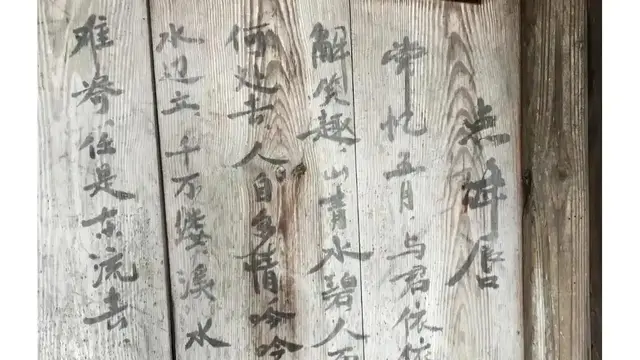 点绛唇
常忆五月，与君依依
解笑趣。山青水碧人
何处去。人自多情吟吟
水边立。千万缕。溪水
难寄。任是东流去。